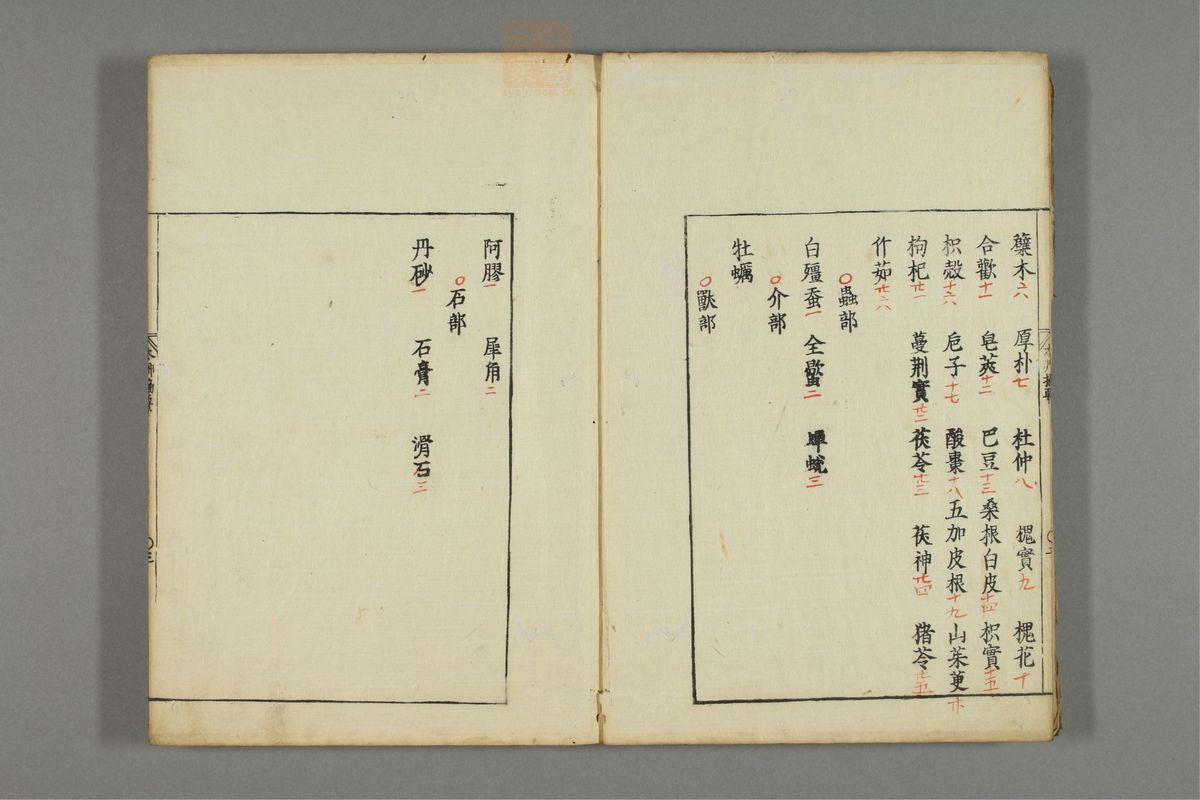 蘗木六 厚朴七 杜仲八 槐實九 槐花十
合歡十一 皂莢十二 巴豆十三 桑根白皮十四 枳實十五
枳殼十六 巵子十七 酸棗十八 五加皮根十九 山茱萸廿
枸杞廿一 蔓荆實廿二 茯苓廿三 茯神廿四 猪苓廿五
竹茹廿六
○蟲部
白殭蚕一 全蝎二 蟬蛻三
○介部
牡蠣
○獸部
阿膠一 犀角二
○石部
丹砂一 石膏二 滑石三